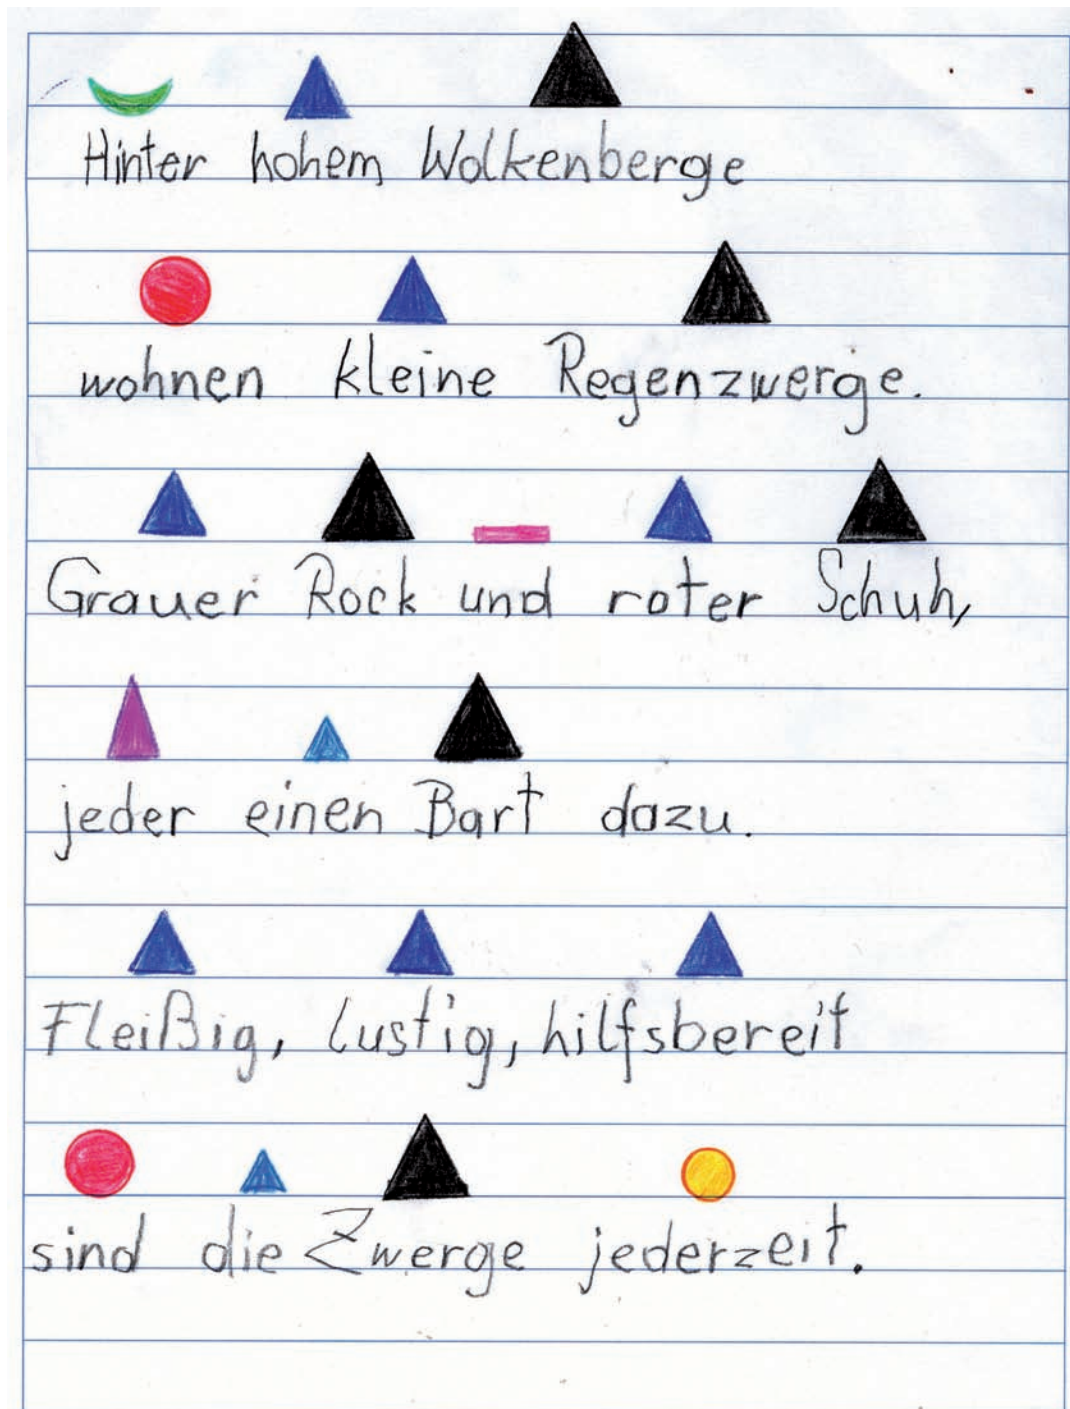 Hinter hohem Wolkenberge
wohnen kleine Regenzwerge.
Grauer Rock und roter Schuh,
jeder einen Bart dazu.
Fleißig, lustig, hilfsbereit
sind die Zwerge jederzeit.